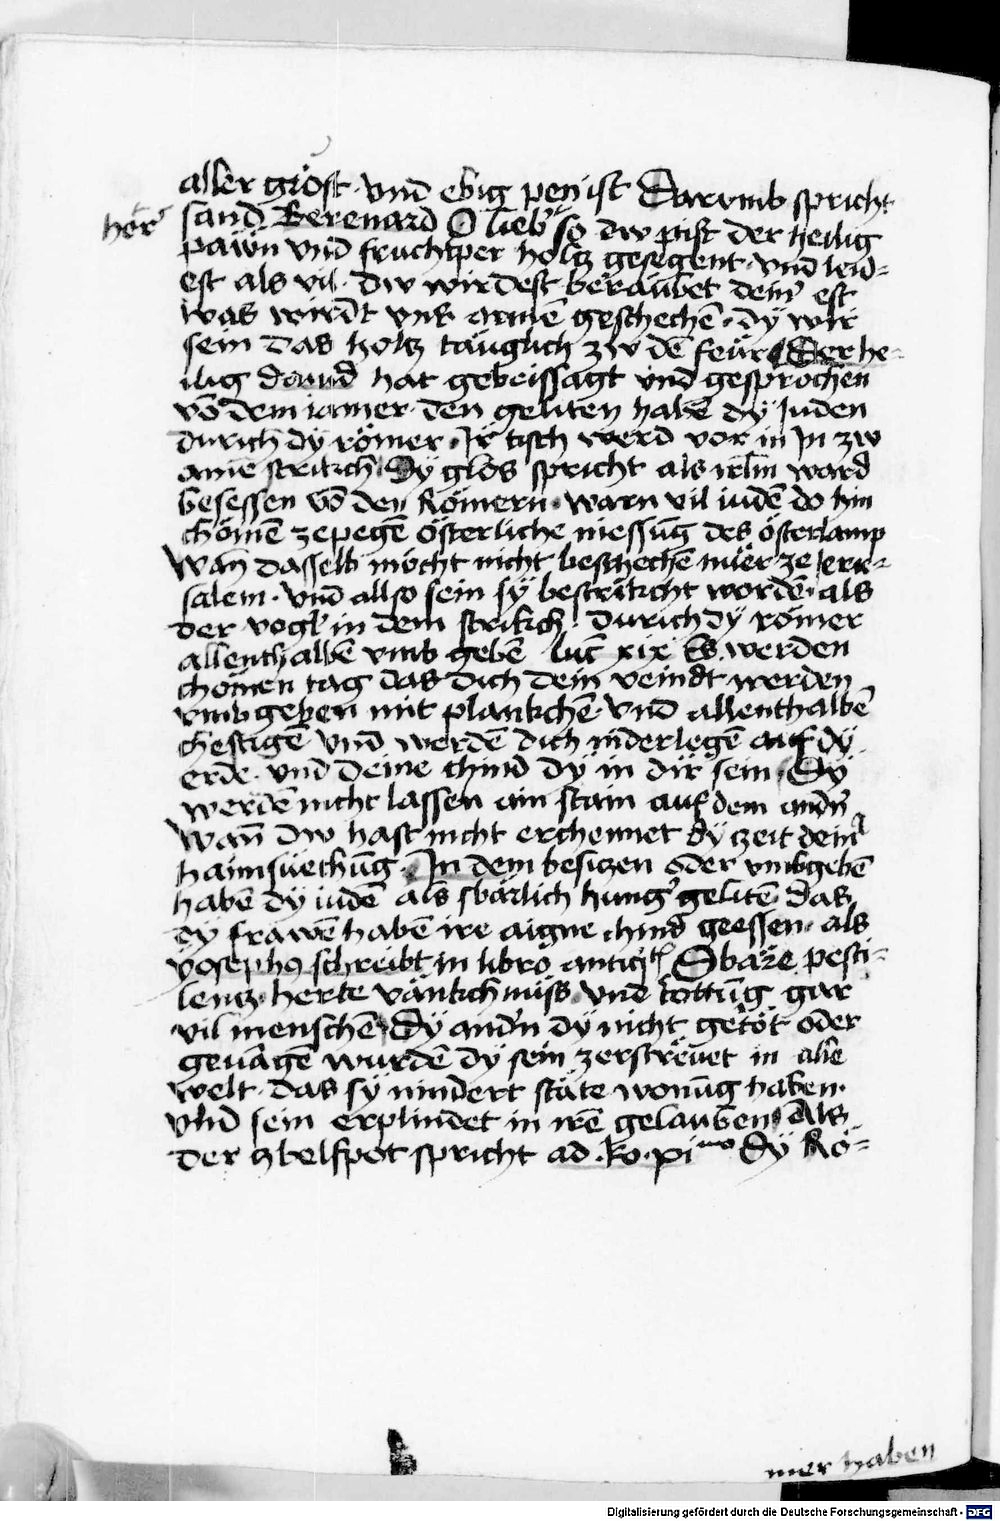 aller gröst · vnd ebig pen ist Darvmb spricht
sand Berenard O lieb' so dw pist der heilig
her̄r
pawn vnd fruchtper holtz gesegent · vnd leid=
est als vil · dw wirdest beraubet dein' est
was wirdt vns armē geschechē · dy wir
sein das holtz tauglich zw dē feur Der he=
ilig dauid hat gebeissagt vnd gesprochen
vō dem iamer · den geliten habē dÿ Juden
durich dÿ römer · Ir tisch werd vor in In zw
ainē strikch · Dÿ glos spricht als irl̄m ward
besessen vō den Römern · warn vil iudē do hin
chömē zepegē österliche niessūg des österlamp
Wan̄ dasselb möcht nicht beschechē nuer ze Jeru=
salem · vnd allso sein sÿ bestrikcht wordē · als
der vogl in dem strikch · durich dÿ römer
allenthalbē vmb gebē luc̄ xix Es werden
chömen tag das dich dein veindt werden
vmbgeben mit plankchē · vnd allenthalbē
chestigē vnd werdē dich niderlegē auf dÿ
erde · vnd deine chind dÿ in dir sein · Dÿ
werdē nicht lassen ain stain auf dem andn̄
Wan̄ dw hast nicht erchennet dÿ zeit dein'
haimsuechūg · In dem besizen oder vmbgebē
habē dÿ iudē als sbärlich hung' gelitē · das
dÿ frawē habē ire aigne chind geessen · als
yosephꝯ schreibt in libro antiq̄tꝫ Sbäre pesti=
lentz · herte vänkchnüss · vnd tottūg gar
vil menschē · Dÿ and'n dÿ nicht getöt oder
geuāgē wurdē dÿ sein zerströuet in alle
welt · das sÿ nindert stäte wonūg haben ·
vnd sein erplindet in irē gelauben · Als
der zbelfpot spricht ad · Ro · pi͞mo Dÿ Rö=
mer haben
Digitalisierung gefördert durch die Deutsche Forschungsgemeinschaft - DFG